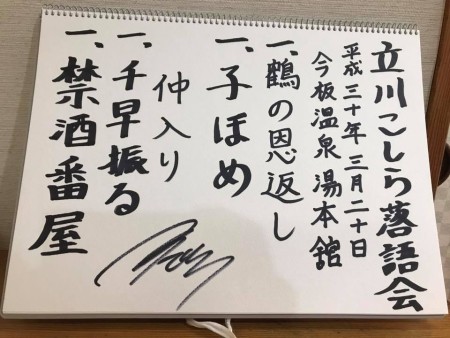 立川こしら落語会
平成三十年三月二十日
今板温泉湯本舘
一、鶴の恩返し
一、子ほめ
仲入り
一、千早振る
一、禁酒番屋